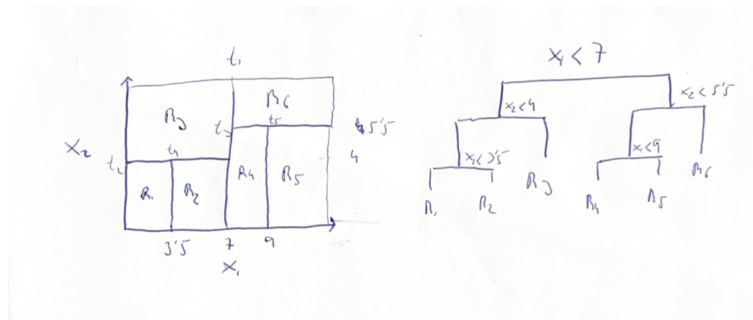 t₁
R₃
R₆
t₃
t₅
5'5
X₂
t₂
t₄
4
R₁
R₂
R₄
R₅
3'5
7
9
X₁
X₁ < 7
X₂<4
X₂<5'5
X₁<3'5
X₁<9
R₁
R₂
R₃
R₄
R₅
R₆